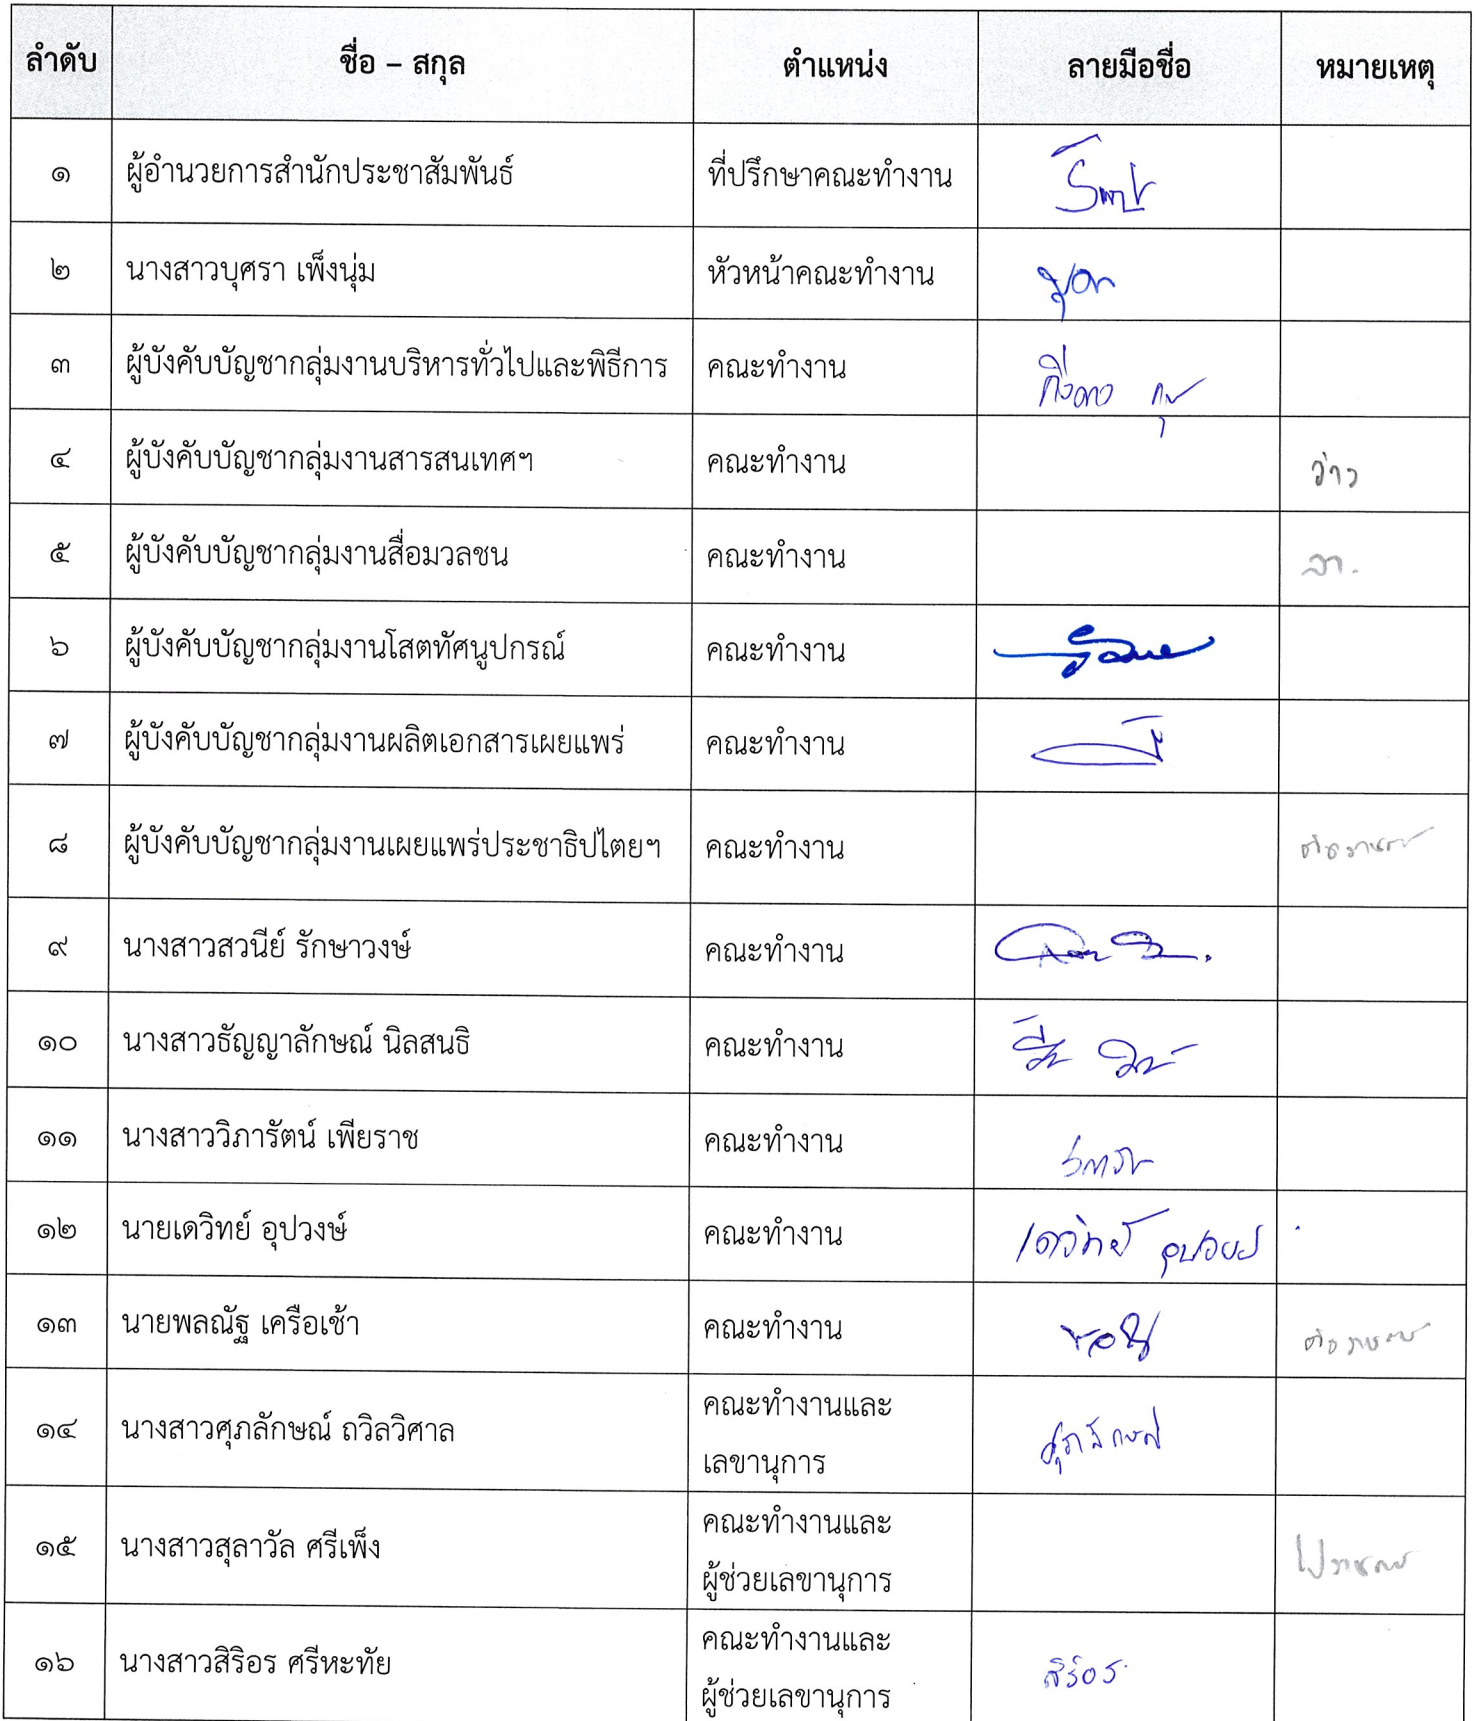 ลำดับ ชื่อ – สกุล ตำแหน่ง ลายมือชื่อ หมายเหตุ
๑ ผู้อำนวยการสำนักประชาสัมพันธ์ ที่ปรึกษาคณะทำงาน
๒ นางสาวบุศรา เพ็งนุ่ม หัวหน้าคณะทำงาน
๓ ผู้บังคับบัญชากลุ่มงานบริหารทั่วไปและพิธีการ คณะทำงาน
๔ ผู้บังคับบัญชากลุ่มงานสารสนเทศฯ คณะทำงาน ว่าง
๕ ผู้บังคับบัญชากลุ่มงานสื่อมวลชน คณะทำงาน ลา.
๖ ผู้บังคับบัญชากลุ่มงานโสตทัศนูปกรณ์ คณะทำงาน
๗ ผู้บังคับบัญชากลุ่มงานผลิตเอกสารเผยแพร่ คณะทำงาน
๘ ผู้บังคับบัญชากลุ่มงานเผยแพร่ประชาธิปไตยฯ คณะทำงาน
๙ นางสาวสวนีย์ รักษาวงษ์ คณะทำงาน
๑๐ นางสาวธัญญาลักษณ์ นิลสนธิ คณะทำงาน
๑๑ นางสาววิภารัตน์ เพียราช คณะทำงาน
๑๒ นายเดวิทย์ อุปวงษ์ คณะทำงาน เดวิทย์ อุปวงษ์
๑๓ นายพลณัฐ เครือเช้า คณะทำงาน
๑๔ นางสาวศุภลักษณ์ ถวิลวิศาล คณะทำงานและ ศุภลักษณ์
เลขานุการ
๑๕ นางสาวสุลาวัล ศรีเพ็ง คณะทำงานและ
ผู้ช่วยเลขานุการ
๑๖ นางสาวสิริอร ศรีหะทัย คณะทำงานและ สิริอร
ผู้ช่วยเลขานุการ